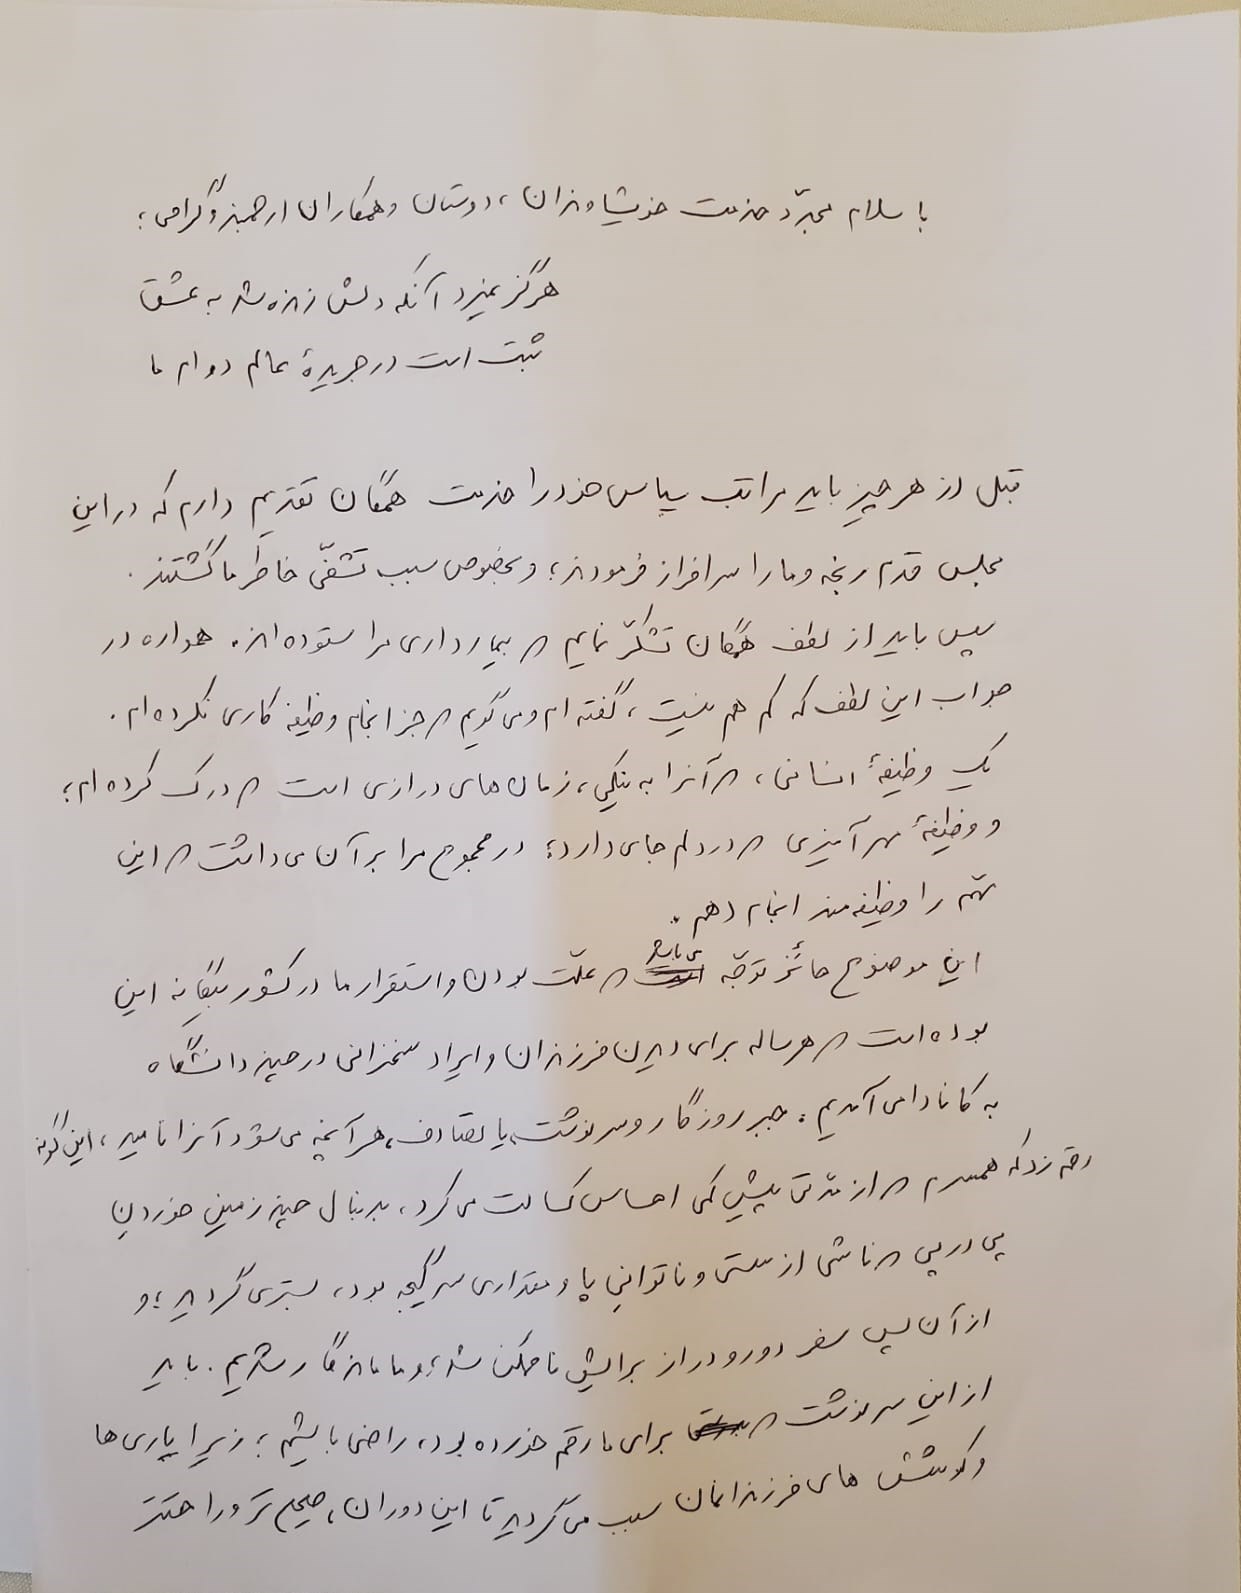 با سلام مجدّد خدمت خویشاوندان، دوستان و همکاران ارجمند و گرامی؛
هرگز نمیرد آنکه دلش زنده شد به عشق
ثبت است در جریدهٔ عالم دوام ما
قبل از هر چیز باید مراتب سپاس خود را خدمت همگان تقدیم دارم که در این
مجلس قدم رنجه و ما را سرافراز فرمودند؛ و بخصوص سبب تشفّی خاطر ما گشتند.
سپس باید از لطف همگان تشکّر نمایم که بیمارداری مرا ستوده‌اند. همواره در
جواب این لطف که کم هم نیست، گفته‌ام و می‌گویم که جز انجام وظیفه کاری نکرده‌ام.
یک وظیفهٔ انسانی، که آنرا به نیکی، زمان‌های درازی است که درک کرده‌ام؛
و وظیفهٔ مهرآمیزی که در دلم جای دارد؛ در مجموع مرا بر آن می‌داشت که این
مهّم را وظیفه‌مند انجام دهم.
این موضوع حائز توجّه می‌باشد که علّت بودن و استقرار ما در کشور بیگانه این
بوده است که هرساله برای دیدن فرزندان و ایراد سخنرانی در چند دانشگاه
به کانادا می‌آمدیم. جبر روزگار و سرنوشت، یا تصادف، هر آنچه می‌شود آنرا نامید، این‌گونه
رقم زد که همسرم که از مدّتی پیش کمی احساس کسالت می‌کرد، بدنبال چند زمین خوردن
پی در پی که ناشی از سستی و ناتوانی پا و مقداری سرگیجه بود، بستری گردید؛ و
از آن پس سفر دور و دراز برایش ناممکن شد؛ و ما ماندگار شدیم. باید
از این سرنوشت که برای ما رقم خورده بود، راضی باشیم؛ زیرا یاری‌ها
و کوشش‌های فرزندانمان سبب می‌گردید تا این دوران، صحیح‌تر و راحت‌تر